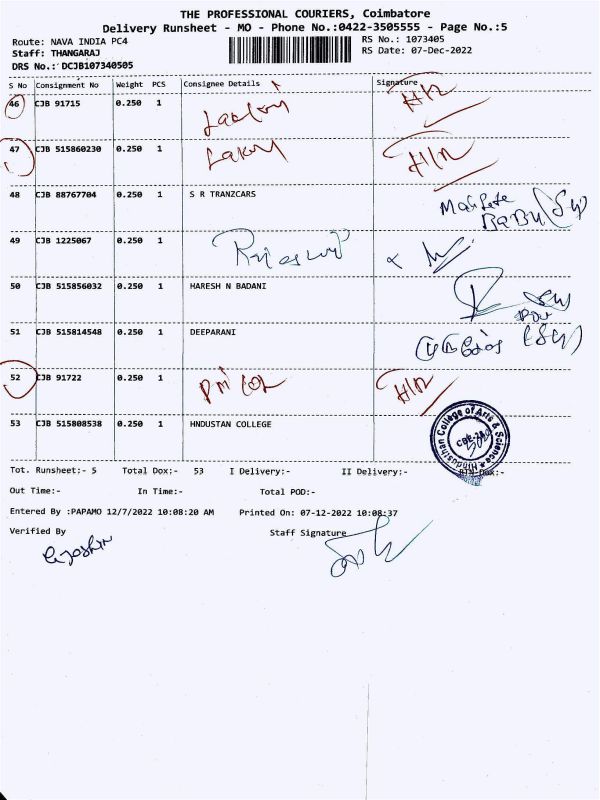 THE PROFESSIONAL COURIERS, Coimbatore
Delivery Runsheet - MO - Phone No.:0422-3505555 - Page No.:5
Route: NAVA INDIA PC4 RS No.: 1073405
Staff: THANGARAJ RS Date: 07-Dec-2022
DRS No.: DCJB107340505
S No Consignment No Weight PCS Consignee Details Signature
46 CJB 91715 0.250 1
47 CJB 515860230 0.250 1
48 CJB 88767704 0.250 1 S R TRANZCARS
49 CJB 1225067 0.250 1
50 CJB 515856032 0.250 1 HARESH N BADANI
51 CJB 515814548 0.250 1 DEEPARANI
52 CJB 91722 0.250 1
53 CJB 515808538 0.250 1 HNDUSTAN COLLEGE
Hindusthan College of Arts & Science
Tot. Runsheet:- 5 Total Dox:- 53 I Delivery:- II Delivery:-
Out Time:- In Time:- Total POD:-
Entered By :PAPAMO 12/7/2022 10:08:20 AM Printed On: 07-12-2022 10:08:37
Verified By Staff Signature